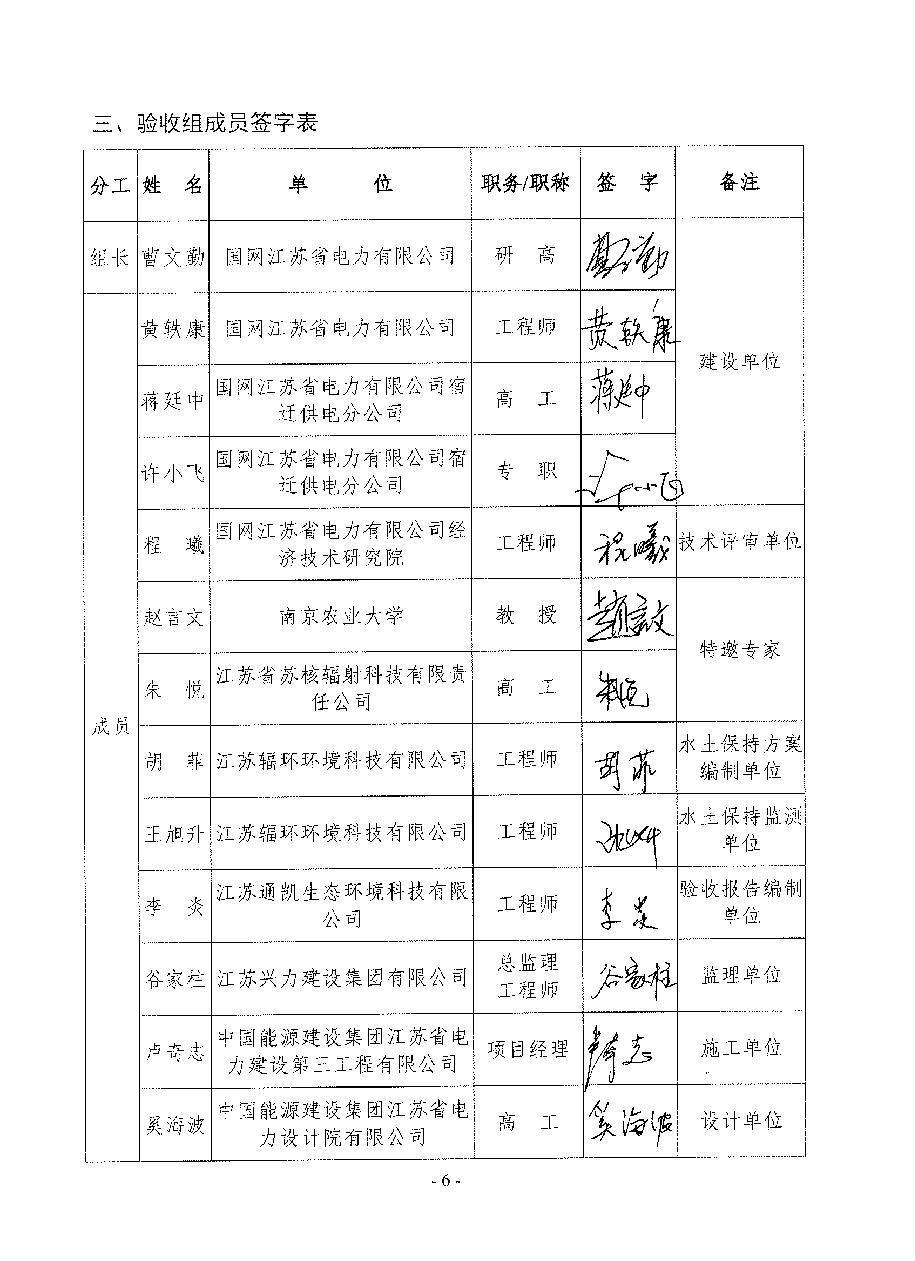 三、验收组成员签字表
分工 姓 名 单 位 职务/职称 签 字 备注
组长 曹文勤 国网江苏省电力有限公司 研 高 曹文勤
黄轶康 国网江苏省电力有限公司 工程师 黄轶康
建设单位
蒋廷中 国网江苏省电力有限公司宿
迁供电分公司 高 工 蒋廷中
许小飞 国网江苏省电力有限公司宿
迁供电分公司 专 职 许小飞
程 曦 国网江苏省电力有限公司经
济技术研究院 工程师 程曦 技术评审单位
赵言文 南京农业大学 教 授 赵言文
特邀专家
朱 悦 江苏省苏核辐射科技有限责
任公司 高 工 朱悦
成员
胡 菲 江苏辐环环境科技有限公司 工程师 胡菲 水土保持方案
编制单位
王旭升 江苏辐环环境科技有限公司 工程师 水土保持监测
单位
李 炎 江苏通凯生态环境科技有限
公司 工程师 李炎 验收报告编制
单位
谷家柱 江苏兴力建设集团有限公司 总监理
工程师 谷家柱 监理单位
卢奇志 中国能源建设集团江苏省电
力建设第三工程有限公司 项目经理 卢奇志 施工单位
奚海波 中国能源建设集团江苏省电
力设计院有限公司 高 工 奚海波 设计单位
- 6 -